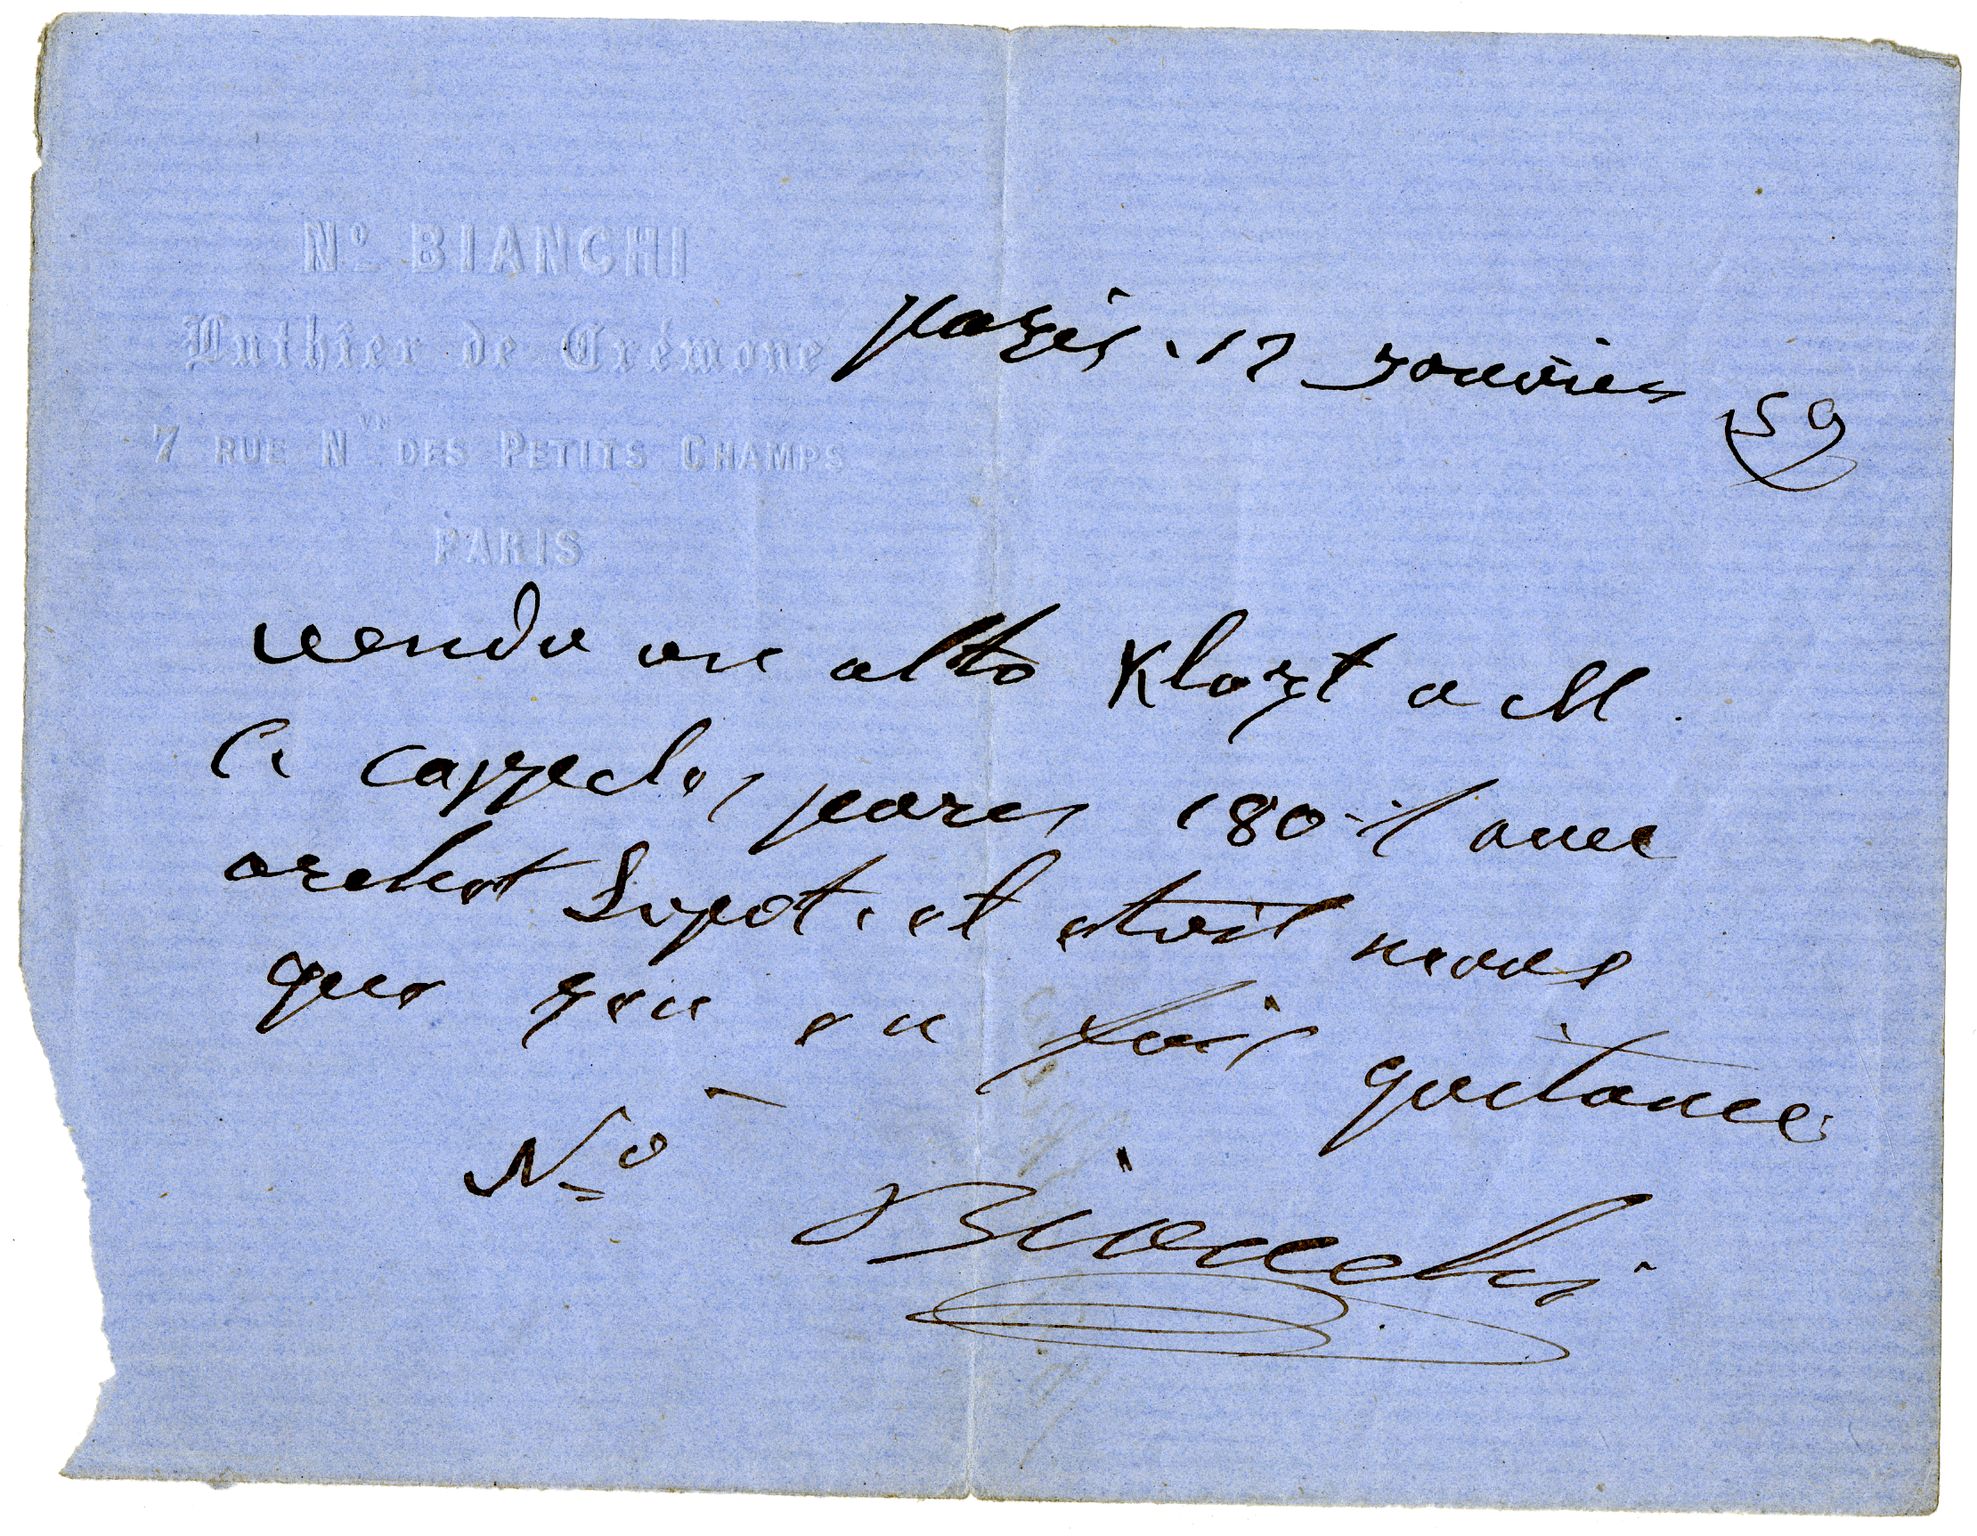 Nº BIANCHI
Luthier de Crémone
7 RUE Nvᴱ DES PETITS CHAMPS
PARIS
paris . 17 janvier 59
vendu un alto Klozt a M.
pour 180 f avec
archet Lupot. et etuit neuve
que jeu en fais quitance
Nº Bianchi